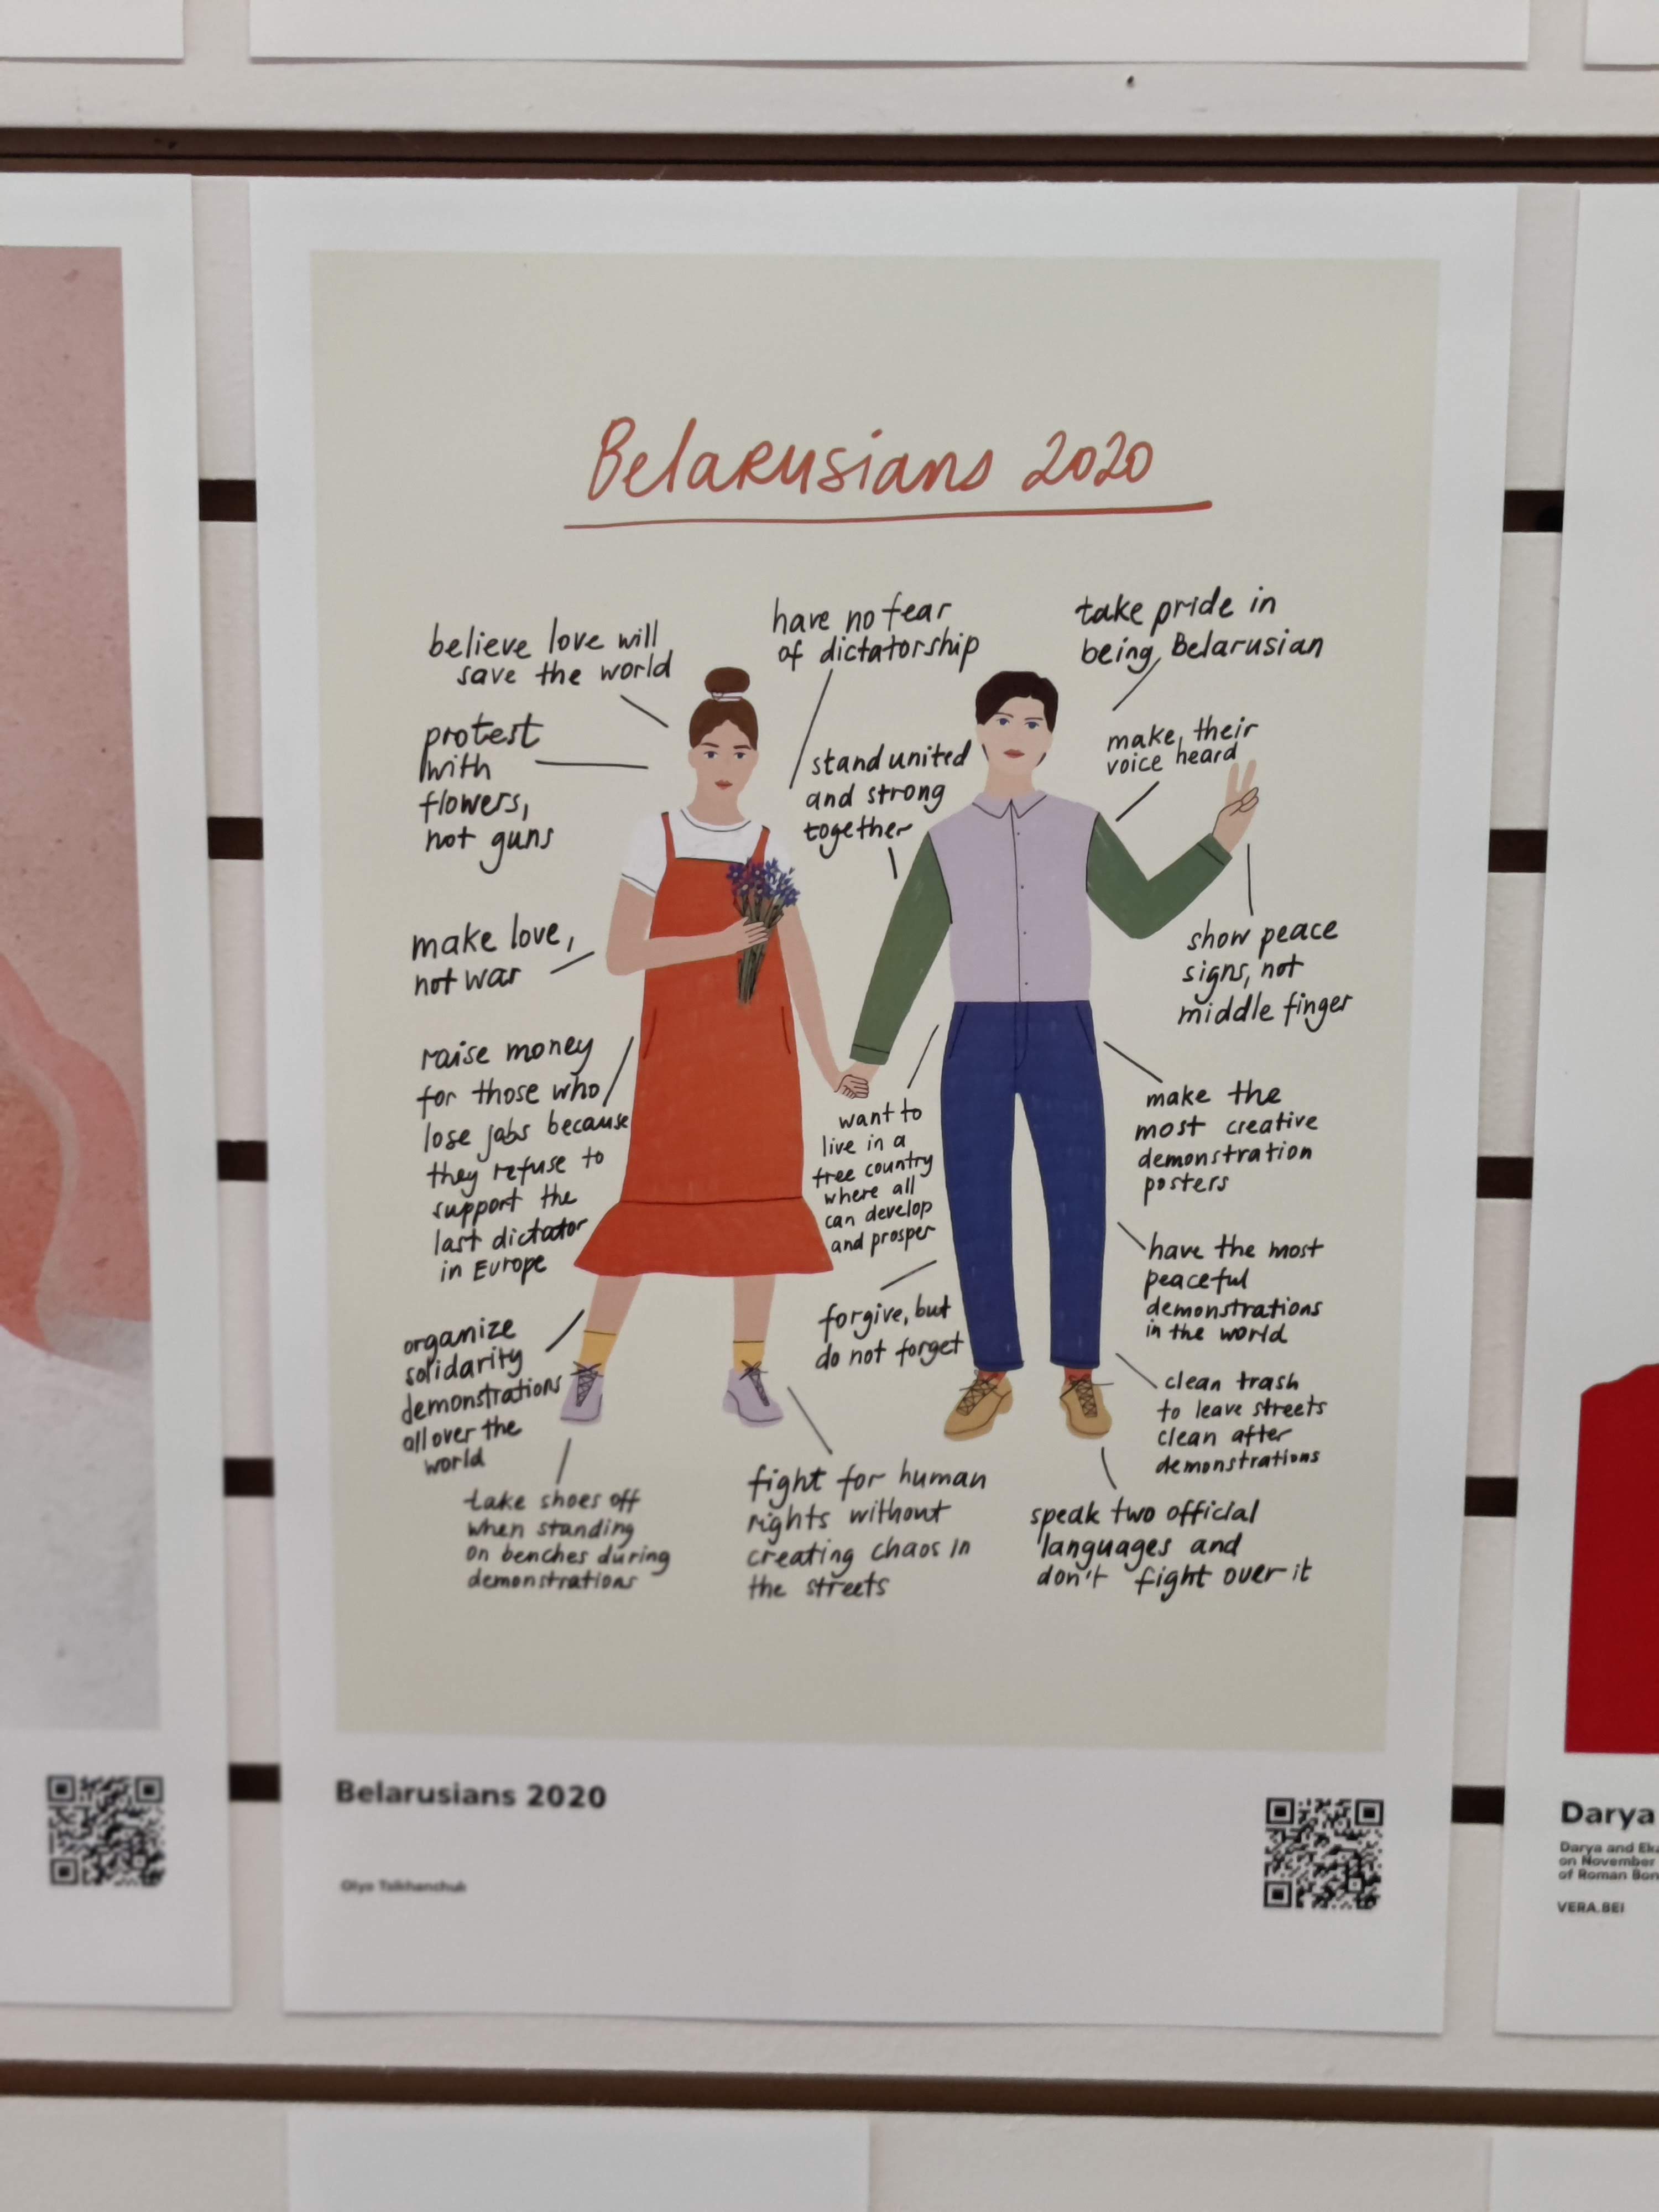 Belarusians 2020
believe love will
save the world
have no fear
of dictatorship
take pride in
being Belarusian
protest
with
flowers,
not guns
stand united
and strong
together
make their
voice heard
make love,
not war
show peace
signs, not
middle finger
raise money
for those who
lose jobs because
they refuse to
support the
last dictator
in Europe
want to
live in a
free country
where all
can develop
and prosper
make the
most creative
demonstration
posters
have the most
peaceful
demonstrations
in the world
forgive, but
do not forget
organize
solidarity
demonstrations
all over the
world
clean trash
to leave streets
clean after
demonstrations
take shoes off
when standing
on benches during
demonstrations
fight for human
rights without
creating chaos in
the streets
speak two official
languages and
don't fight over it
Belarusians 2020
Darya
Darya and
on November
of Roman
VERA.BEI